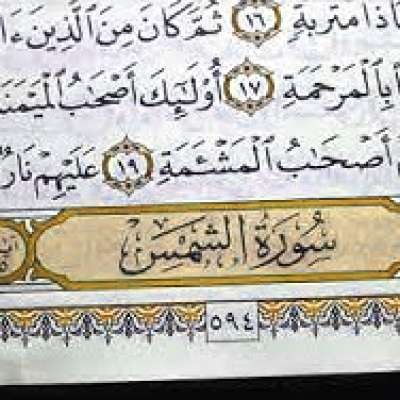 ذَا مَتْرَبَةٍ ١٦ ثُمَّ كَانَ مِنَ ٱلَّذِينَ ءَا
بِٱلْمَرْحَمَةِ ١٧ أُو۟لَـٰٓئِكَ أَصْحَـٰبُ ٱلْمَيْمَنَ
أَصْحَـٰبُ ٱلْمَشْـَٔمَةِ ١٩ عَلَيْهِمْ نَارٌ
سُورَةُ الشَّمْسِ
٥٩٤